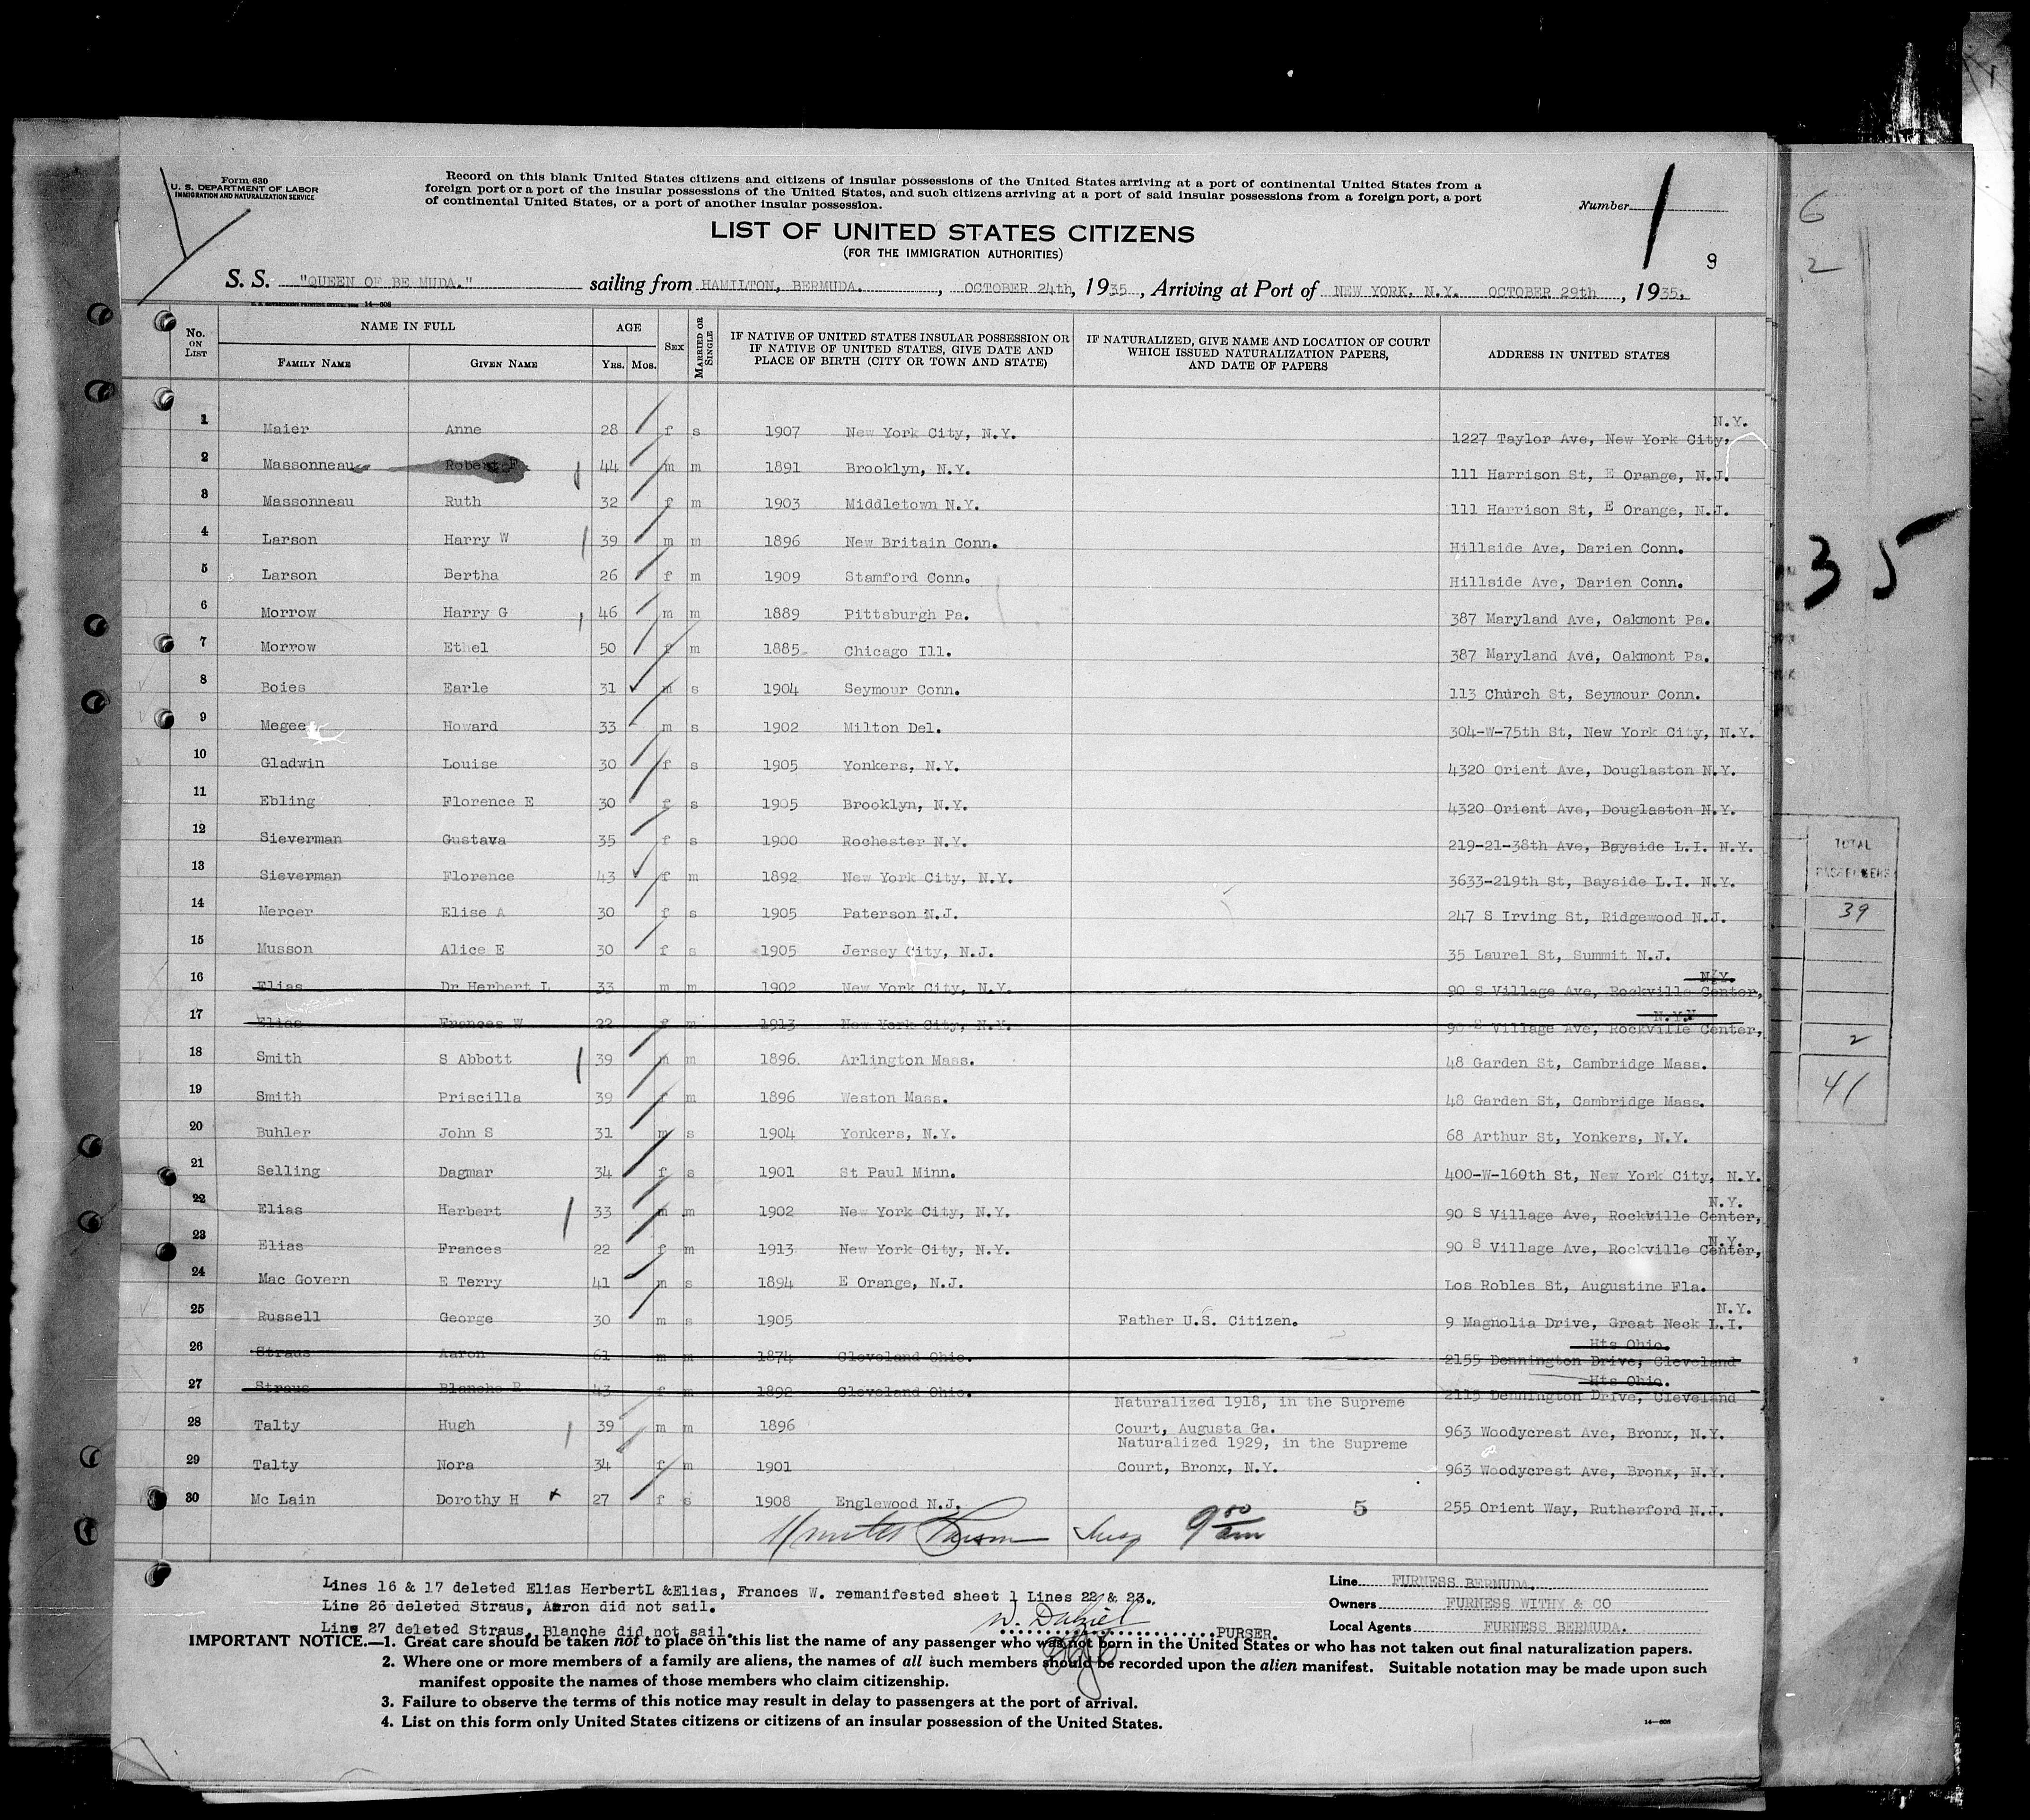 Form 630
U. S. DEPARTMENT OF LABOR
IMMIGRATION AND NATURALIZATION SERVICE
Record on this blank United States citizens and citizens of insular possessions of the United States arriving at a port of continental United States from a
foreign port or a port of the insular possessions of the United States, and such citizens arriving at a port of said insular possessions from a foreign port, a port
of continental United States, or a port of another insular possession.
Number
LIST OF UNITED STATES CITIZENS
(FOR THE IMMIGRATION AUTHORITIES)
9
6
2
S. S. "QUEEN OF BERMUDA." sailing from HAMILTON, BERMUDA. , OCTOBER 24th, 1935 , Arriving at Port of NEW YORK, N.Y. OCTOBER 29th , 1935.
14—608
No. ON LIST NAME IN FULL AGE SEX MARRIED OR SINGLE IF NATIVE OF UNITED STATES INSULAR POSSESSION OR IF NATIVE OF UNITED STATES, GIVE DATE AND PLACE OF BIRTH (CITY OR TOWN AND STATE) IF NATURALIZED, GIVE NAME AND LOCATION OF COURT WHICH ISSUED NATURALIZATION PAPERS, AND DATE OF PAPERS ADDRESS IN UNITED STATES
FAMILY NAME GIVEN NAME YRS. MOS.
1 Maier Anne 28 f s 1907 New York City, N.Y. 1227 Taylor Ave, New York City, N.Y.
2 Massonneau Robert F 44 m m 1891 Brooklyn, N.Y. 111 Harrison St, E Orange, N.J.
3 Massonneau Ruth 32 f m 1903 Middletown N.Y. 111 Harrison St, E Orange, N.J.
4 Larson Harry W 39 m m 1896 New Britain Conn. Hillside Ave, Darien Conn.
5 Larson Bertha 26 f m 1909 Stamford Conn. Hillside Ave, Darien Conn.
6 Morrow Harry G 46 m m 1889 Pittsburgh Pa. 387 Maryland Ave, Oakmont Pa.
7 Morrow Ethel 50 f m 1885 Chicago Ill. 387 Maryland Ave, Oakmont Pa.
8 Boies Earle 31 m s 1904 Seymour Conn. 113 Church St, Seymour Conn.
9 Megee Howard 33 m s 1902 Milton Del. 304-W-75th St, New York City, N.Y.
10 Gladwin Louise 30 f s 1905 Yonkers, N.Y. 4320 Orient Ave, Douglaston N.Y.
11 Ebling Florence E 30 f s 1905 Brooklyn, N.Y. 4320 Orient Ave, Douglaston N.Y.
12 Sieverman Gustava 35 f s 1900 Rochester N.Y. 219-21-38th Ave, Bayside L.I. N.Y.
13 Sieverman Florence 43 f m 1892 New York City, N.Y. 3633-219th St, Bayside L.I. N.Y.
14 Mercer Elise A 30 f s 1905 Paterson N.J. 247 S Irving St, Ridgewood N.J.
15 Musson Alice E 30 f s 1905 Jersey City, N.J. 35 Laurel St, Summit N.J.
16 Elias Dr Herbert L 33 m m 1902 New York City, N.Y. 90 S Village Ave, Rockville Center, N.Y.
17 Elias Frances W 22 f m 1913 New York City, N.Y. 90 S Village Ave, Rockville Center, N.Y.
18 Smith S Abbott 39 m m 1896 Arlington Mass. 48 Garden St, Cambridge Mass.
19 Smith Priscilla 39 f m 1896 Weston Mass. 48 Garden St, Cambridge Mass.
20 Buhler John S 31 m s 1904 Yonkers, N.Y. 68 Arthur St, Yonkers, N.Y.
21 Selling Dagmar 34 f s 1901 St Paul Minn. 400-W-160th St, New York City, N.Y.
22 Elias Herbert 33 m m 1902 New York City, N.Y. 90 S Village Ave, Rockville Center, N.Y.
23 Elias Frances 22 f m 1913 New York City, N.Y. 90 S Village Ave, Rockville Center, N.Y.
24 Mac Govern E Terry 41 m s 1894 E Orange, N.J. Los Robles St, Augustine Fla.
25 Russell George 30 m s 1905 Father U.S. Citizen. 9 Magnolia Drive, Great Neck L.I. N.Y.
26 Straus Aaron 61 m m 1874 Cleveland Ohio. 2155 Dennington Drive, Cleveland Hts Ohio.
27 Straus Blanche R 43 f m 1892 Cleveland Ohio. 2115 Dennington Drive, Cleveland Hts Ohio.
28 Talty Hugh 39 m m 1896 Naturalized 1918, in the Supreme Court, Augusta Ga. 963 Woodycrest Ave, Bronx, N.Y.
29 Talty Nora 34 f m 1901 Naturalized 1929, in the Supreme Court, Bronx, N.Y. 963 Woodycrest Ave, Bronx, N.Y.
30 Mc Lain Dorothy H x 27 f s 1908 Englewood N.J. 255 Orient Way, Rutherford N.J.
5
9 00 am
35
TOTAL
PASSENGERS
39
2
41
Lines 16 & 17 deleted Elias HerbertL &Elias, Frances W. remanifested sheet 1 Lines 22 & 23.
Line 26 deleted Straus, Aaron did not sail.
Line 27 deleted Straus, Blanche did not sail.
W. Dalziel
PURSER.
Line FURNESS BERMUDA.
Owners FURNESS WITHY & CO
Local Agents FURNESS BERMUDA.
IMPORTANT NOTICE.—1. Great care should be taken not to place on this list the name of any passenger who was not born in the United States or who has not taken out final naturalization papers.
2. Where one or more members of a family are aliens, the names of all such members should be recorded upon the alien manifest. Suitable notation may be made upon such
manifest opposite the names of those members who claim citizenship.
3. Failure to observe the terms of this notice may result in delay to passengers at the port of arrival.
4. List on this form only United States citizens or citizens of an insular possession of the United States.
14—608